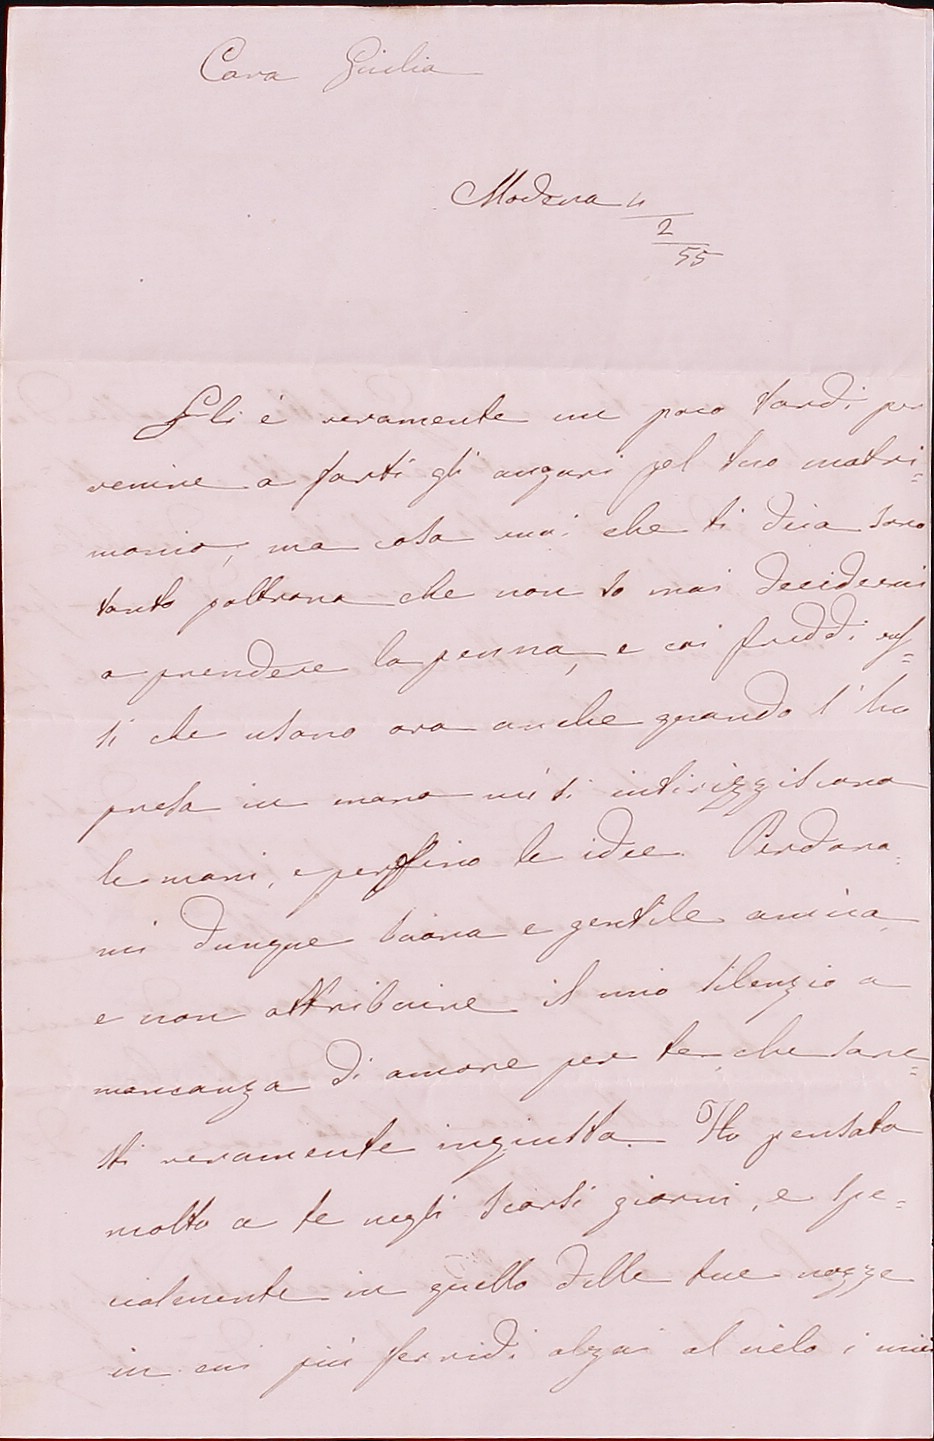 Cara Giulia
Modena 4
2
55
Gli è veramente un poco tardi per
venire a farti gli auguri pel tuo matri=
monio, ma cosa mai che ti dica sono
tanto poltrona che non so mai decidermi
a prendere la penna, e coi freddi
si che usano ora anche quando l'ho
presa in mano mi si intirizziscono
le mani, e perfino le idee. Perdona
mi dunque buona e gentile amica,
e non attribuire il mio silenzio a
mancanza di amore per te, che sare=
sti veramente ingiusta. Ho pensato
molto a te negli scorsi giorni, e spe=
cialmente in quello delle tue nozze
in cui più fervidi alzai al cielo i miei